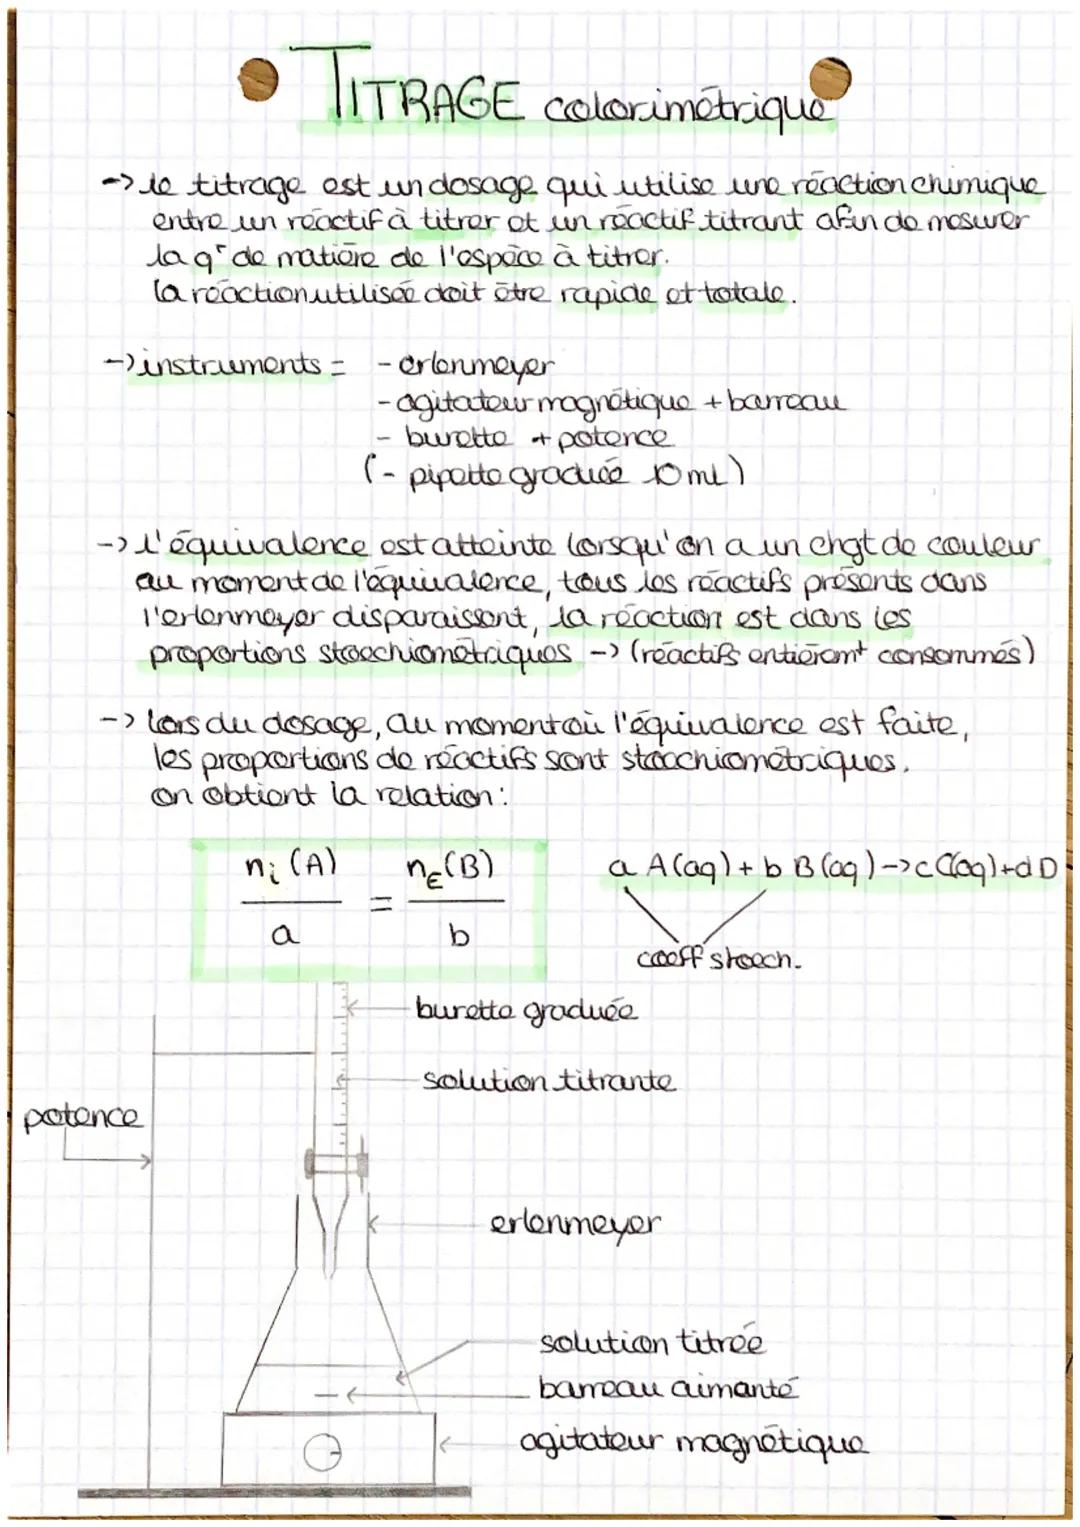 TITRAGE colorimétrique
-> le titrage est un dosage qui utilise une réaction chimique
entre un réactif à titrer et un réactif titrant afin de mesurer
la qᵗ de matière de l'espèce à titrer.
la réaction utilisée doit être rapide et totale.
-> instruments = - erlenmeyer
- agitateur magnétique + barreau
- burette + potence
(- pipette graduée 10 mL)
-> l'équivalence est atteinte lorsqu'on a un chgt de couleur
au moment de l'équivalence, tous les réactifs présents dans
l'erlenmeyer disparaissent, la réaction est dans les
proportions stoechiométriques -> (réactifs entièremᵗ consommés)
-> lors du dosage, au moment où l'équivalence est faite,
les proportions de réactifs sont stoechiométriques.
on obtient la relation:
nᵢ(A) / a = n_E(B) / b
a A(aq) + b B(aq) -> c C(aq) + d D
coeff stoech.
burette graduée
solution titrante
potence
erlenmeyer
solution titrée
barreau aimanté
agitateur magnétique